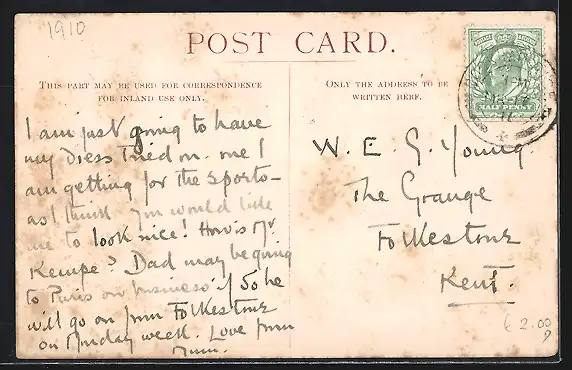 1910
POST CARD.
THIS PART MAY BE USED FOR CORRESPONDENCE
FOR INLAND USE ONLY.
ONLY THE ADDRESS TO BE
WRITTEN HERE.
HALFPENNY
I am just going to have
my dress tried on. one I
am getting for the sports –
as I think you would like
me to look nice! How's Mr
Kempe? Dad may be going
to Paris on business. If So he
will go on from Folkestone
on Monday week. Love from
Mum.
W. E. G. Young
The Grange
Folkestone
Kent.
£ 2.00